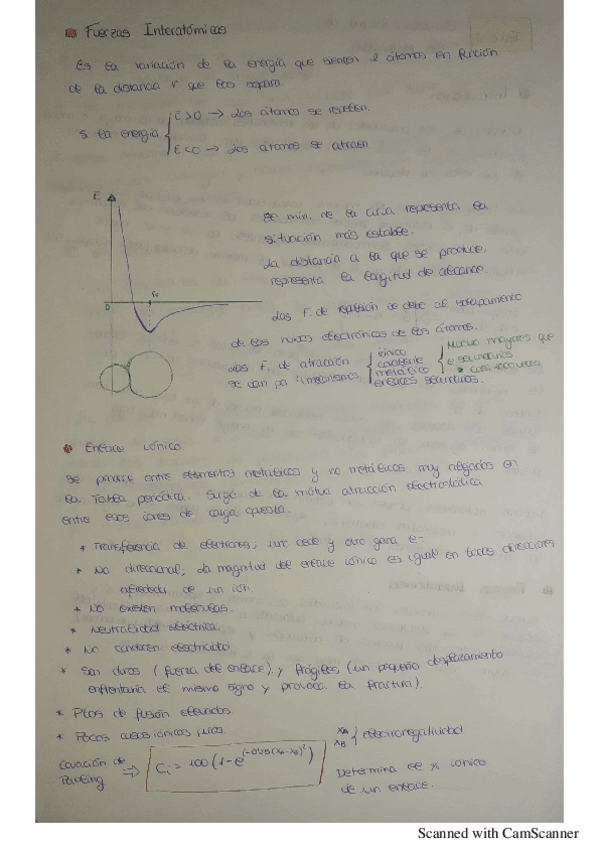 Fuerzas Interatómicas
Es la variación de la energía que sienten 2 átomos en función
de la distancia r que los separa.
E>0 → Los átomos se repelen.
Si la energía
E<0 → Los átomos se atraen
E
0
r₀
se min. de la curva representa la
situación más estable.
La distancia a la que se produce,
representa la longitud de
Las F. de repulsión se debe al solapamiento
de las nubes electrónicas de los átomos.
Las F. de atracción
se dan por 4 mecanismos
iónico
covalente
metálico
enlaces secundarios.
Mucho mayores que
e. secundarios
Enlace iónico
Se produce entre elementos metálicos y no metálicos muy alejados en
la Tabla periódica. Surge de la mutua atracción electrostática
entre esos iones de carga opuesta.
* Transferencia de electrones; uno cede y otro gana e-
* No direccional; La magnitud del enlace iónico es igual en todas direcciones
alrededor de un ión.
* No existen moléculas.
* Neutralidad eléctrica.
* No conducen electricidad
* Son duros (fuerza del enlace), y frágiles (un pequeño desplazamiento
enfrentaría el mismo signo y provoca la fractura).
* Ptos de fusión elevados.
* Pocos casos iónicos puros.
Ecuación de
Pauling ⇒ Ci = 100 (1 - e^(-0'25(XA-XB)²))
XA
XB } electronegatividad
Determina el % iónico
de un enlace.
Scanned with CamScanner